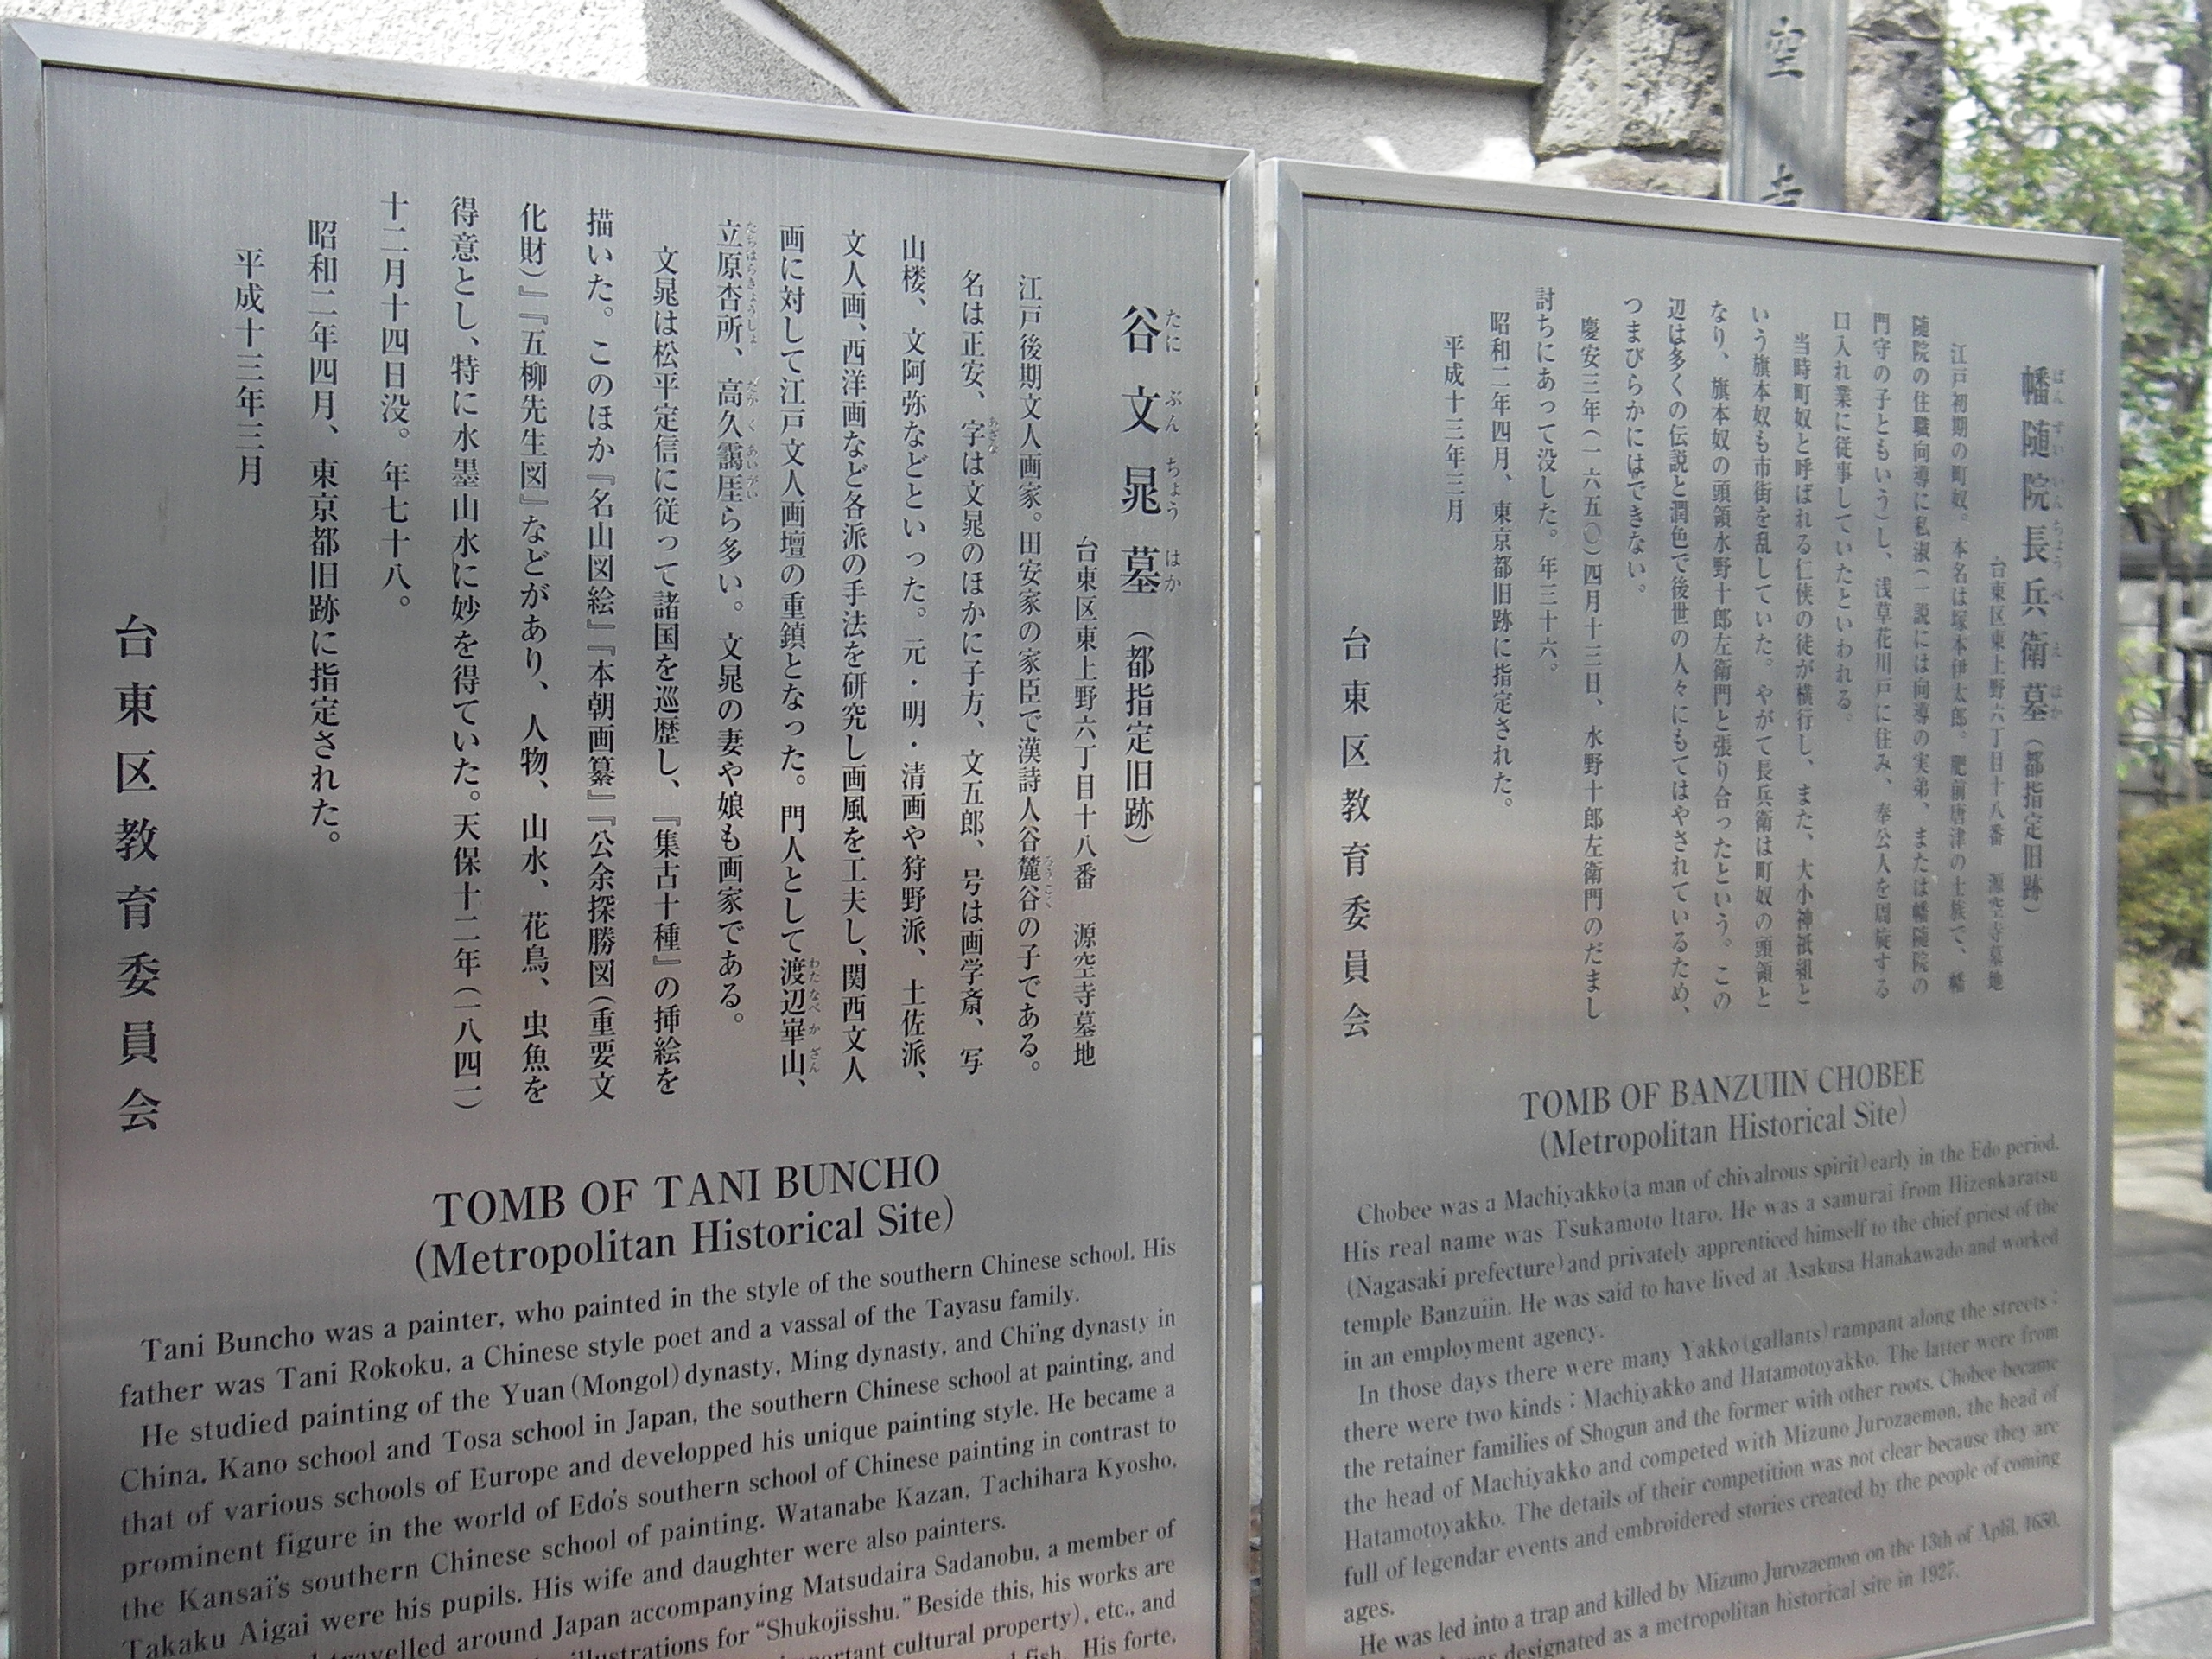 谷文晁墓（都指定旧跡）
たに ぶん ちょう はか
台東区東上野六丁目十八番 源空寺墓地
江戸後期文人画家。田安家の家臣で漢詩人谷麓谷の子である。
ろうこく
名は正安、字は文晁のほかに子方、文五郎、号は画学斎、写
あざな
山楼、文阿弥などといった。元・明・清画や狩野派、土佐派、
文人画、西洋画など各派の手法を研究し画風を工夫し、関西文人
画に対して江戸文人画壇の重鎮となった。門人として渡辺崋山、
わたなべかざん
立原杏所、高久靄厓ら多い。文晁の妻や娘も画家である。
たちはらきょうしょ たかく あいがい
文晁は松平定信に従って諸国を巡歴し、『集古十種』の挿絵を
描いた。このほか『名山図絵』『本朝画纂』『公余探勝図（重要文
化財）』『五柳先生図』などがあり、人物、山水、花鳥、虫魚を
得意とし、特に水墨山水に妙を得ていた。天保十二年（一八四一）
十二月十四日没。年七十八。
昭和二年四月、東京都旧跡に指定された。
平成十三年三月
台東区教育委員会
TOMB OF TANI BUNCHO
(Metropolitan Historical Site)
Tani Buncho was a painter, who painted in the style of the southern Chinese school. His
father was Tani Rokoku, a Chinese style poet and a vassal of the Tayasu family.
He studied painting of the Yuan (Mongol) dynasty, Ming dynasty, and Chi'ng dynasty in
China, Kano school and Tosa school in Japan, the southern Chinese school at painting, and
that of various schools of Europe and developped his unique painting style. He became a
prominent figure in the world of Edo's southern school of Chinese painting in contrast to
the Kansai's southern Chinese school of painting. Watanabe Kazan, Tachihara Kyosho,
Takaku Aigai were his pupils. His wife and daughter were also painters.
travelled around Japan accompanying Matsudaira Sadanobu, a member of
illustrations for "Shukojisshu." Beside this, his works are
cultural property), etc., and
fish. His forte,
空寺
幡随院長兵衛墓（都指定旧跡）
ばん ずい いん ちょう べ え はか
台東区東上野六丁目十八番 源空寺墓地
江戸初期の町奴。本名は塚本伊太郎。肥前唐津の士族で、幡
随院の住職向導に私淑（一説には向導の実弟、または幡随院の
門守の子ともいう）し、浅草花川戸に住み、奉公人を周旋する
口入れ業に従事していたといわれる。
当時町奴と呼ばれる仁侠の徒が横行し、また、大小神祇組と
いう旗本奴も市街を乱していた。やがて長兵衛は町奴の頭領と
なり、旗本奴の頭領水野十郎左衛門と張り合ったという。この
辺は多くの伝説と潤色で後世の人々にもてはやされているため、
つまびらかにはできない。
慶安三年（一六五〇）四月十三日、水野十郎左衛門のだまし
討ちにあって没した。年三十六。
昭和二年四月、東京都旧跡に指定された。
平成十三年三月
台東区教育委員会
TOMB OF BANZUIIN CHOBEE
(Metropolitan Historical Site)
Chobee was a Machiyakko (a man of chivalrous spirit) early in the Edo period.
His real name was Tsukamoto Itaro. He was a samurai from Hizenkaratsu
(Nagasaki prefecture) and privately apprenticed himself to the chief priest of the
temple Banzuiin. He was said to have lived at Asakusa Hanakawado and worked
in an employment agency.
In those days there were many Yakko (gallants) rampant along the streets :
there were two kinds : Machiyakko and Hatamotoyakko. The latter were from
the retainer families of Shogun and the former with other roots. Chobee became
the head of Machiyakko and competed with Mizuno Jurozaemon, the head of
Hatamotoyakko. The details of their competition was not clear because they are
full of legendar events and embroidered stories created by the people of coming
ages.
He was led into a trap and killed by Mizuno Jurozaemon on the 13th of Aplil, 1650.
was designated as a metropolitan historical site in 1927.